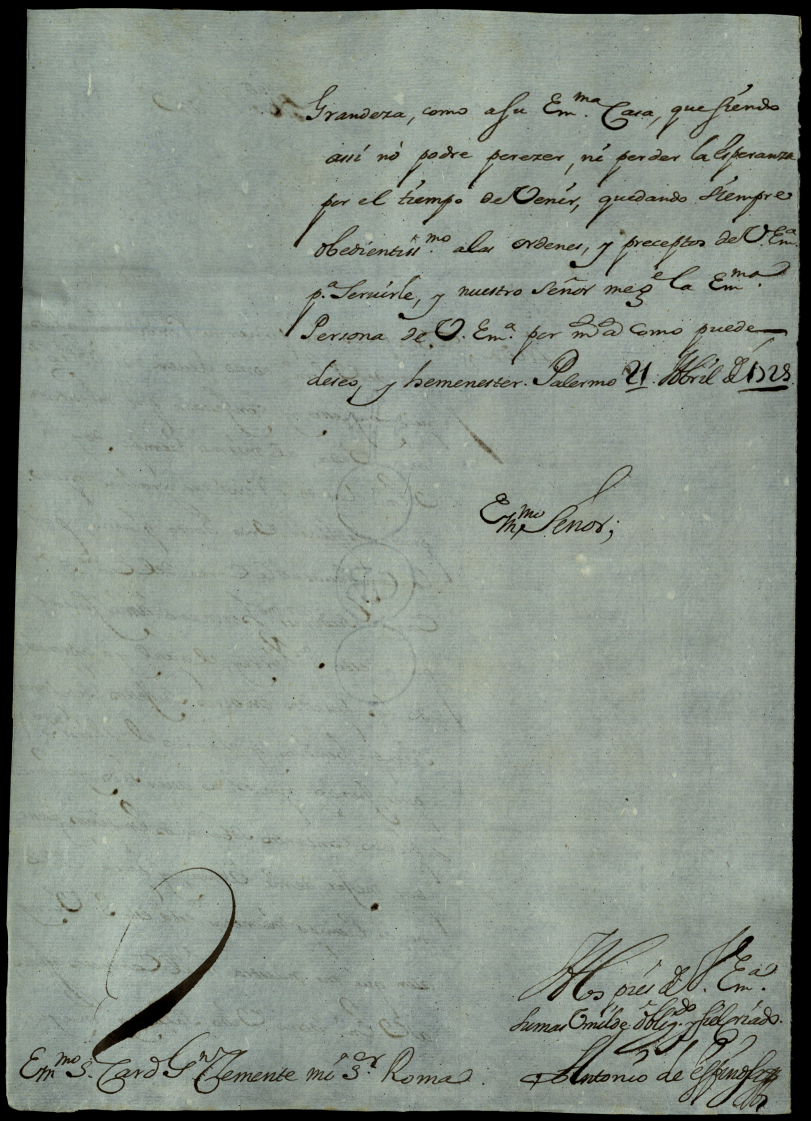 Grandeza, como a su Em.ma Casa, que siendo
assi nò podre perezer, ni perder la esperanza
por el tiempo de Venir, quedando siempre
obedientiss.mo a las ordenes, y preceptos de V. Em.a
p.a Seruirle, y nuestro Señor me g.e la Em.ma
Persona de V. Em.a por m.s a.s como puede
deseo, y hemenester. Palermo 21 Abril de 1728.
Em.mo Señor;
A los pies de V. Em.a
su mas Omilde oblig.do y fiel Criado.
Em.mo S. Card.
Clemente mi S.or Roma
Antonio de